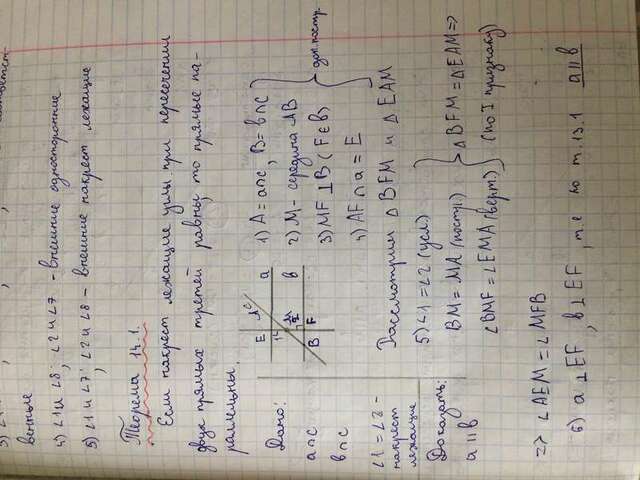 4) ∠1 и ∠8, ∠2 и ∠7 - внешние односторонние
5) ∠1 и ∠7, ∠2 и ∠8 - внешние накрест лежащие
Теорема 14.1.
Если накрест лежащие углы при пересечении
двух прямых третей равны, то прямые па-
раллельны.
Дано:
a∩c
b∩c
∠1 = ∠2 -
накрест
лежащие
Доказать:
a || b
E a
c
M
B F b
1) A = a∩c, B = b∩c
2) M - середина AB
3) MF ⊥ B (F∈b)
4) AF ∩ a = E
доп. постр.
Рассмотрим △ BFM и △ EAM
5) ∠1 = ∠2 (усл)
BM = MA (постр.)
∠BMF = ∠EMA (верт.)
△ BFM = △ EAM =>
(по I признаку)
=> ∠AEM = ∠MFB
6) a ⊥ EF, b ⊥ EF, т.е по т.13.1 a || b